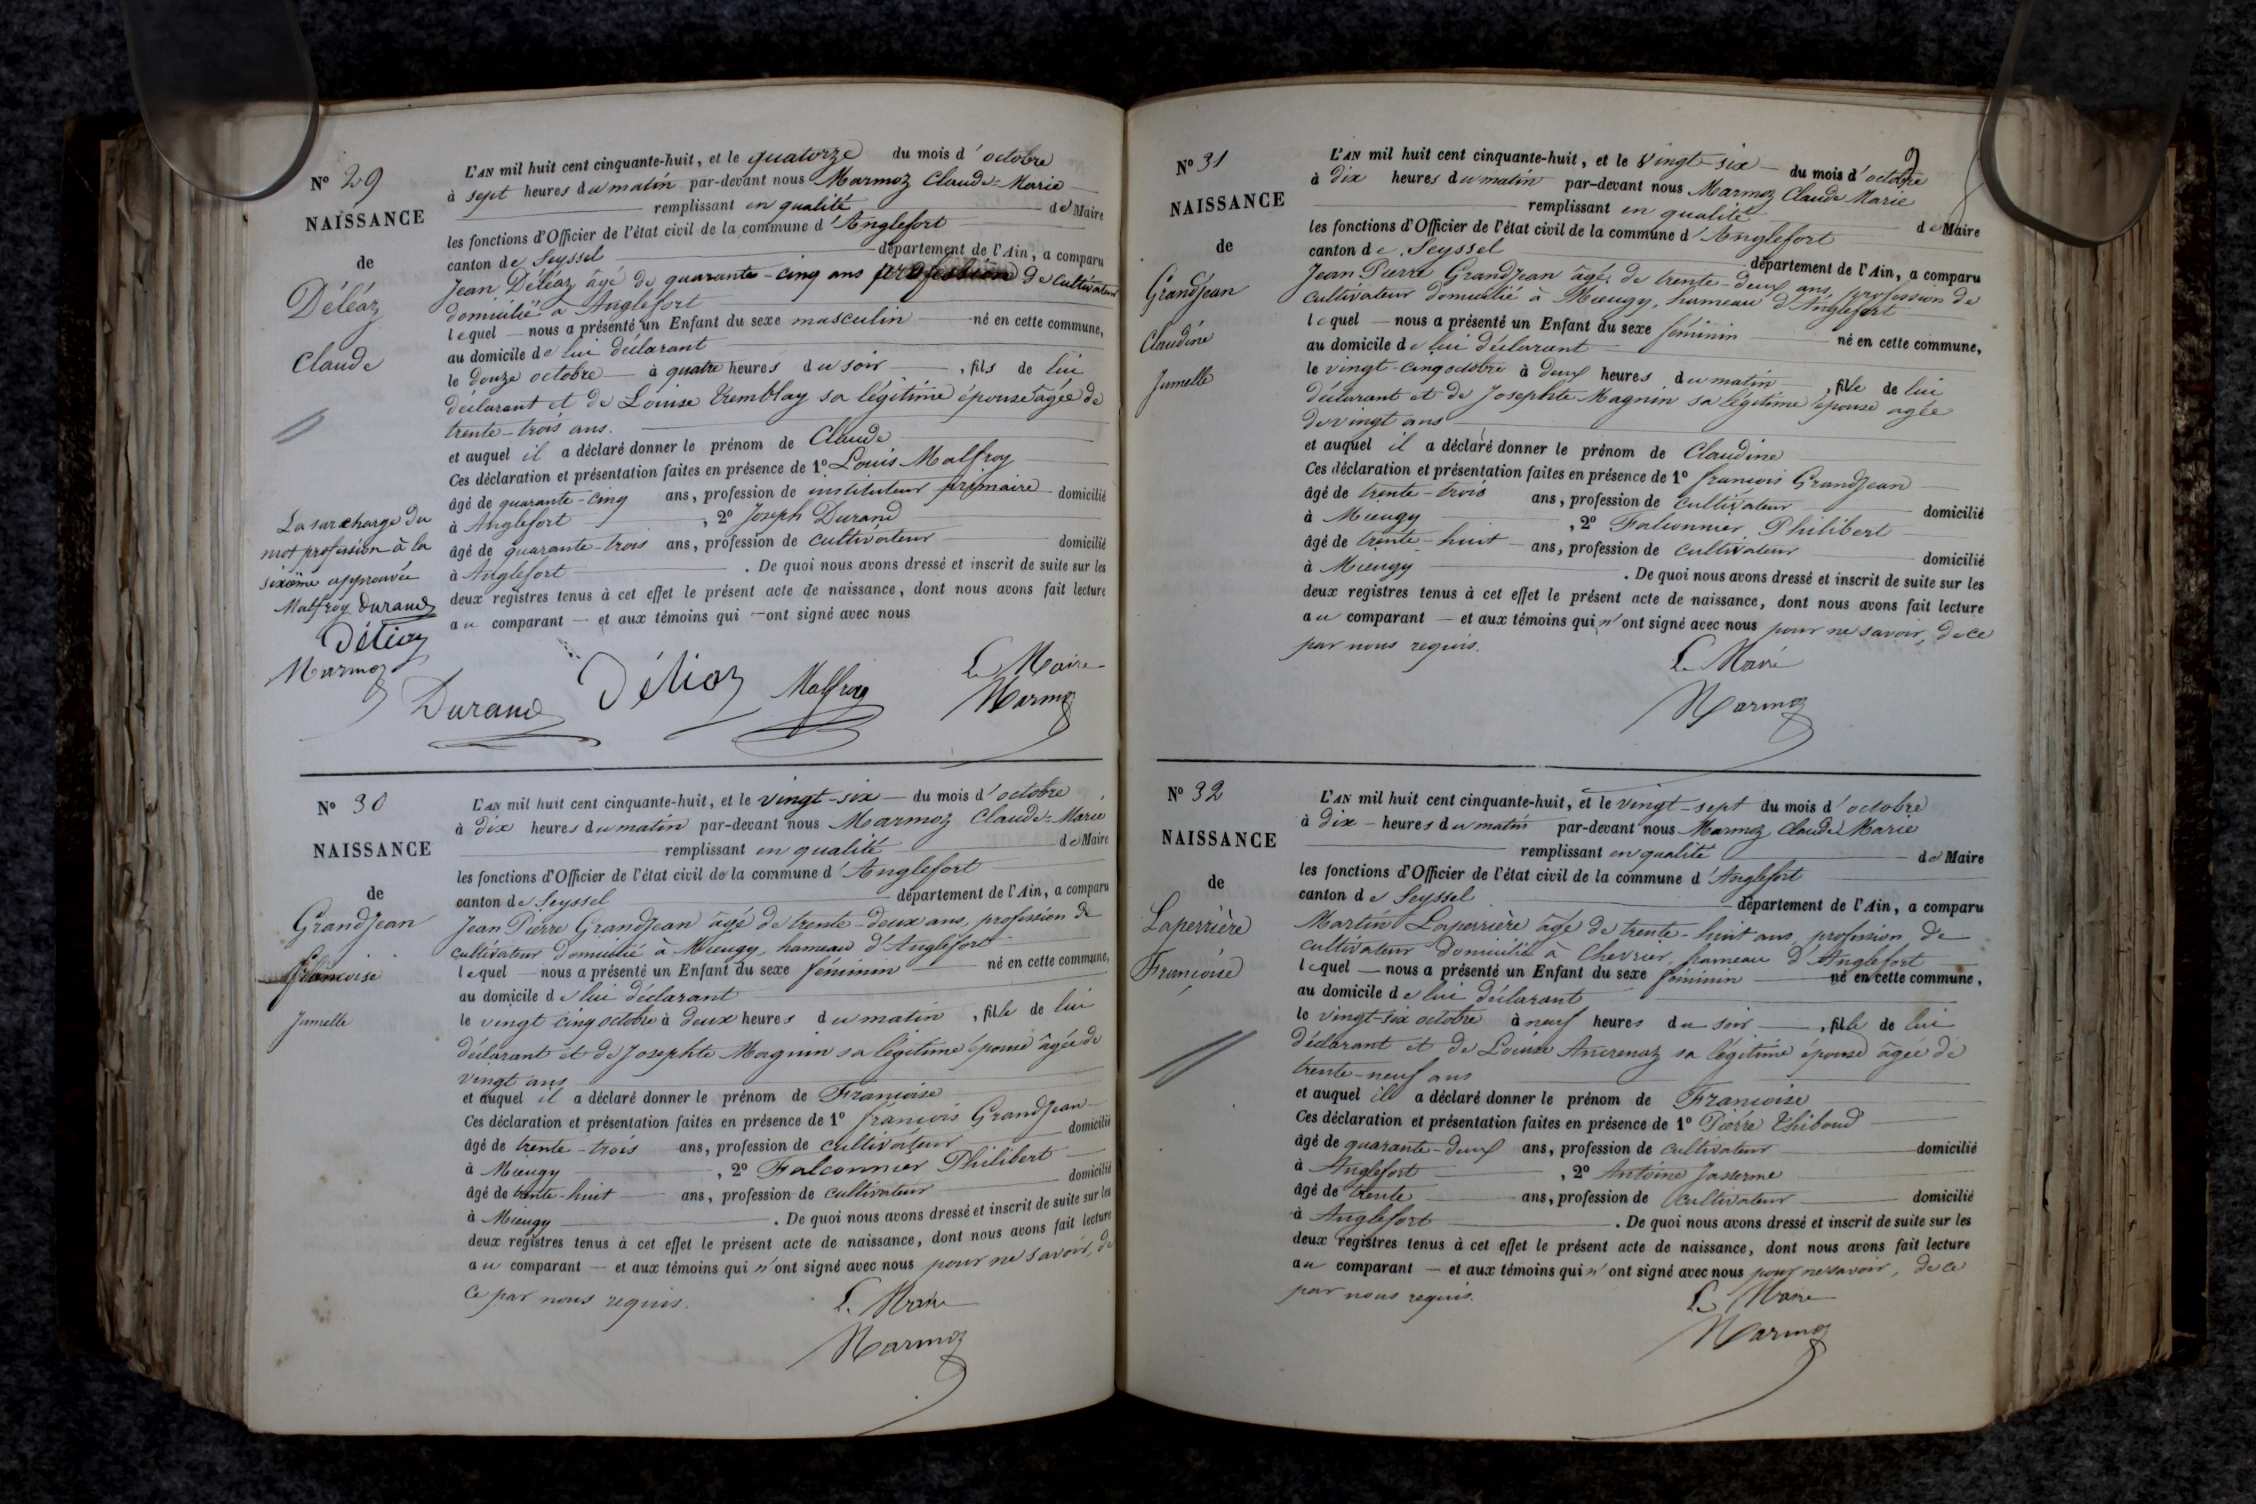 N° 29
NAISSANCE
de
Déléaz
Claude
L'AN mil huit cent cinquante-huit, et le quatorze du mois d'octobre
à sept heures du matin par-devant nous Marmoz Claude-Marie
remplissant en qualité de Maire
les fonctions d'Officier de l'état civil de la commune d'Anglefort
canton de Seyssel département de l'Ain, a comparu
Jean Déléaz âgé de quarante-cinq ans profession de cultivateur
domicilié à Anglefort
lequel nous a présenté un Enfant du sexe masculin né en cette commune,
au domicile de lui déclarant
le douze octobre à quatre heures du soir, fils de lui
déclarant et de Louise Tremblay sa légitime épouse âgée de
trente-trois ans.
et auquel il a déclaré donner le prénom de Claude
Ces déclaration et présentation faites en présence de 1° Louis Malfroy
âgé de quarante-cinq ans, profession de instituteur primaire domicilié
à Anglefort, 2° Joseph Durand
âgé de quarante-trois ans, profession de cultivateur domicilié
à Anglefort. De quoi nous avons dressé et inscrit de suite sur les
deux registres tenus à cet effet le présent acte de naissance, dont nous avons fait lecture
au comparant et aux témoins qui ont signé avec nous
La surcharge du
mot profession à la
sixième approuvée
Malfroy Durand
Déléaz
Marmoz
Le Maire
Durand Déléaz Malfroy Marmoz
N° 30
NAISSANCE
de
GrandJean
Francoise
Jumelle
L'AN mil huit cent cinquante-huit, et le vingt-six du mois d'octobre
à dix heures du matin par-devant nous Marmoz Claude-Marie
remplissant en qualité de Maire
les fonctions d'Officier de l'état civil de la commune d'Anglefort
canton de Seyssel département de l'Ain, a comparu
Jean Pierre GrandJean âgé de trente-deux ans, profession de
cultivateur domicilié à Mieugy, hameau d'Anglefort
lequel nous a présenté un Enfant du sexe féminin né en cette commune,
au domicile de lui déclarant
le vingt cinq octobre à deux heures du matin, fille de lui
déclarant et de Josephte Magnin sa légitime épouse âgée de
vingt ans
et auquel il a déclaré donner le prénom de Francoise
Ces déclaration et présentation faites en présence de 1° francois GrandJean
âgé de trente-trois ans, profession de cultivateur domicilié
à Mieugy, 2° Falconnier Philibert
âgé de trente-huit ans, profession de cultivateur domicilié
à Mieugy. De quoi nous avons dressé et inscrit de suite sur les
deux registres tenus à cet effet le présent acte de naissance, dont nous avons fait lecture
au comparant et aux témoins qui n'ont signé avec nous pour ne savoir, de
ce par nous requis.
Le Maire
Marmoz
9
N° 31
NAISSANCE
de
GrandJean
Claudine
Jumelle
L'AN mil huit cent cinquante-huit, et le vingt-six du mois d'octobre
à dix heures du matin par-devant nous Marmoz Claude Marie
remplissant en qualité de Maire
les fonctions d'Officier de l'état civil de la commune d'Anglefort
canton de Seyssel département de l'Ain, a comparu
Jean Pierre GrandJean âgé de trente-deux ans, profession de
cultivateur domicilié à Mieugy, hameau d'Anglefort
lequel nous a présenté un Enfant du sexe féminin né en cette commune,
au domicile de lui déclarant
le vingt-cinq octobre à deux heures du matin, fille de lui
déclarant et de Josephte Magnin sa légitime épouse agée
de vingt ans
et auquel il a déclaré donner le prénom de Claudine
Ces déclaration et présentation faites en présence de 1° francois GrandJean
âgé de trente-trois ans, profession de cultivateur domicilié
à Mieugy, 2° Falconnier Philibert
âgé de trente-huit ans, profession de cultivateur domicilié
à Mieugy. De quoi nous avons dressé et inscrit de suite sur les
deux registres tenus à cet effet le présent acte de naissance, dont nous avons fait lecture
au comparant et aux témoins qui n'ont signé avec nous pour ne savoir, de ce
par nous requis.
Le Maire
Marmoz
N° 32
NAISSANCE
de
Laperrière
Françoise
L'AN mil huit cent cinquante-huit, et le vingt-sept du mois d'octobre
à dix heures du matin par-devant nous Marmoz Claude Marie
remplissant en qualité de Maire
les fonctions d'Officier de l'état civil de la commune d'Anglefort
canton de Seyssel département de l'Ain, a comparu
Martin Laperrière âgé de trente-huit ans, profession de
cultivateur domicilié à Chevrier, hameau d'Anglefort
lequel nous a présenté un Enfant du sexe féminin né en cette commune,
au domicile de lui déclarant
le vingt-six octobre à neuf heures du soir, fille de lui
déclarant et de Louise Ancrenaz sa légitime épouse âgée de
trente-neuf ans
et auquel il a déclaré donner le prénom de Francoise
Ces déclaration et présentation faites en présence de 1° Pierre Thiboud
âgé de quarante-deux ans, profession de cultivateur domicilié
à Anglefort, 2° Antoine Jasserme
âgé de trente ans, profession de cultivateur domicilié
à Anglefort. De quoi nous avons dressé et inscrit de suite sur les
deux registres tenus à cet effet le présent acte de naissance, dont nous avons fait lecture
au comparant et aux témoins qui n'ont signé avec nous pour ne savoir, de ce
par nous requis.
Le Maire
Marmoz